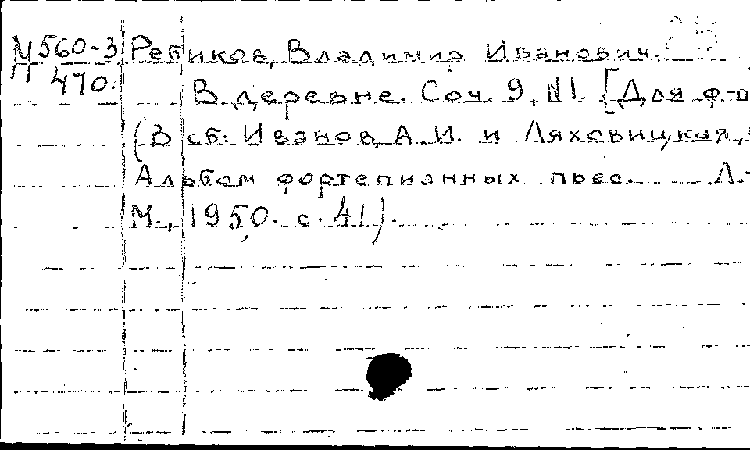 М560-3 Ребиков, Владимир Иванович.
П 470. В деревне. Соч. 9, №1. [Для ф-п
(В сб: Иванов, А.И. и Ляховицкая,
Альбом фортепианных пьес. Л.-
М., 1950. с. 41).